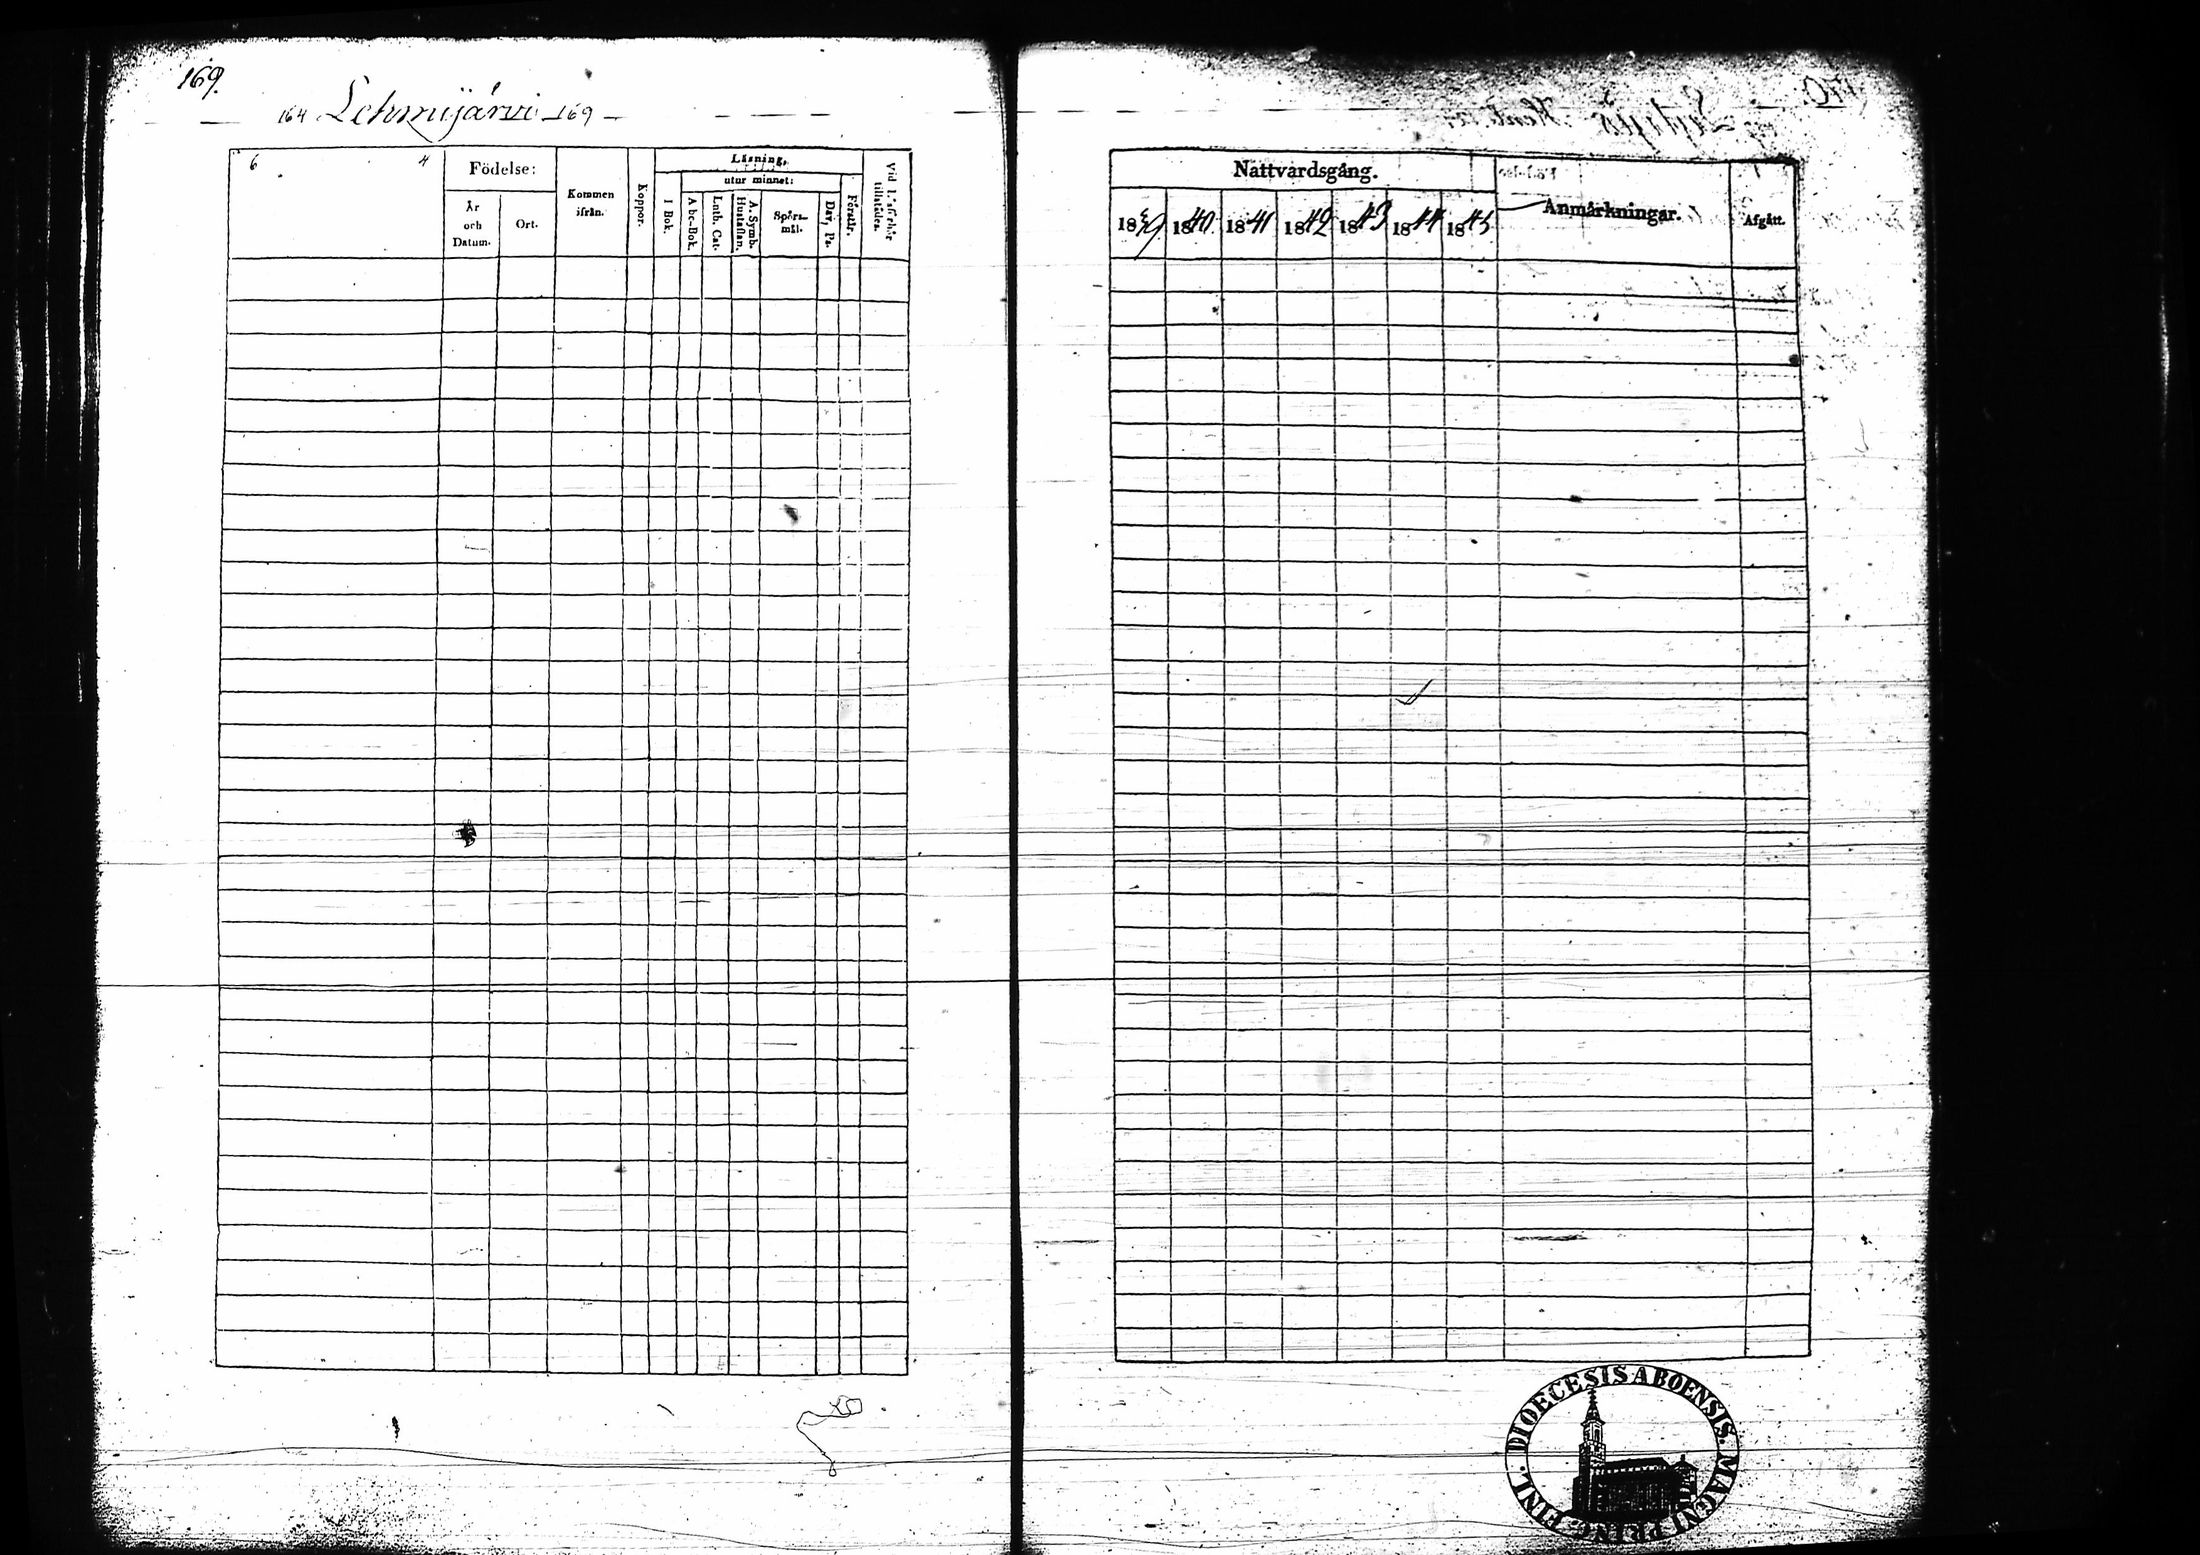 169.
164 Lehmijärvi 169
6 4
Födelse:
År
och
Datum.
Ort.
Kommen
ifrån.
Koppor.
Läsning,
utur minnet:
I Bok.
Abc-Bok.
Luth. Cat.
Hustaflan.
A. Symb.
Spörs-
mål.
Dav. Ps.
Förstår.
Vid Läseförhör
tillstädes.
Nattvardsgång.
1839. 1840. 1841 1842 1843 1844 1845
Anmärkningar.
Afgått.
DIOECESIS ABOENSIS. MAGNI PRINC. FINL.